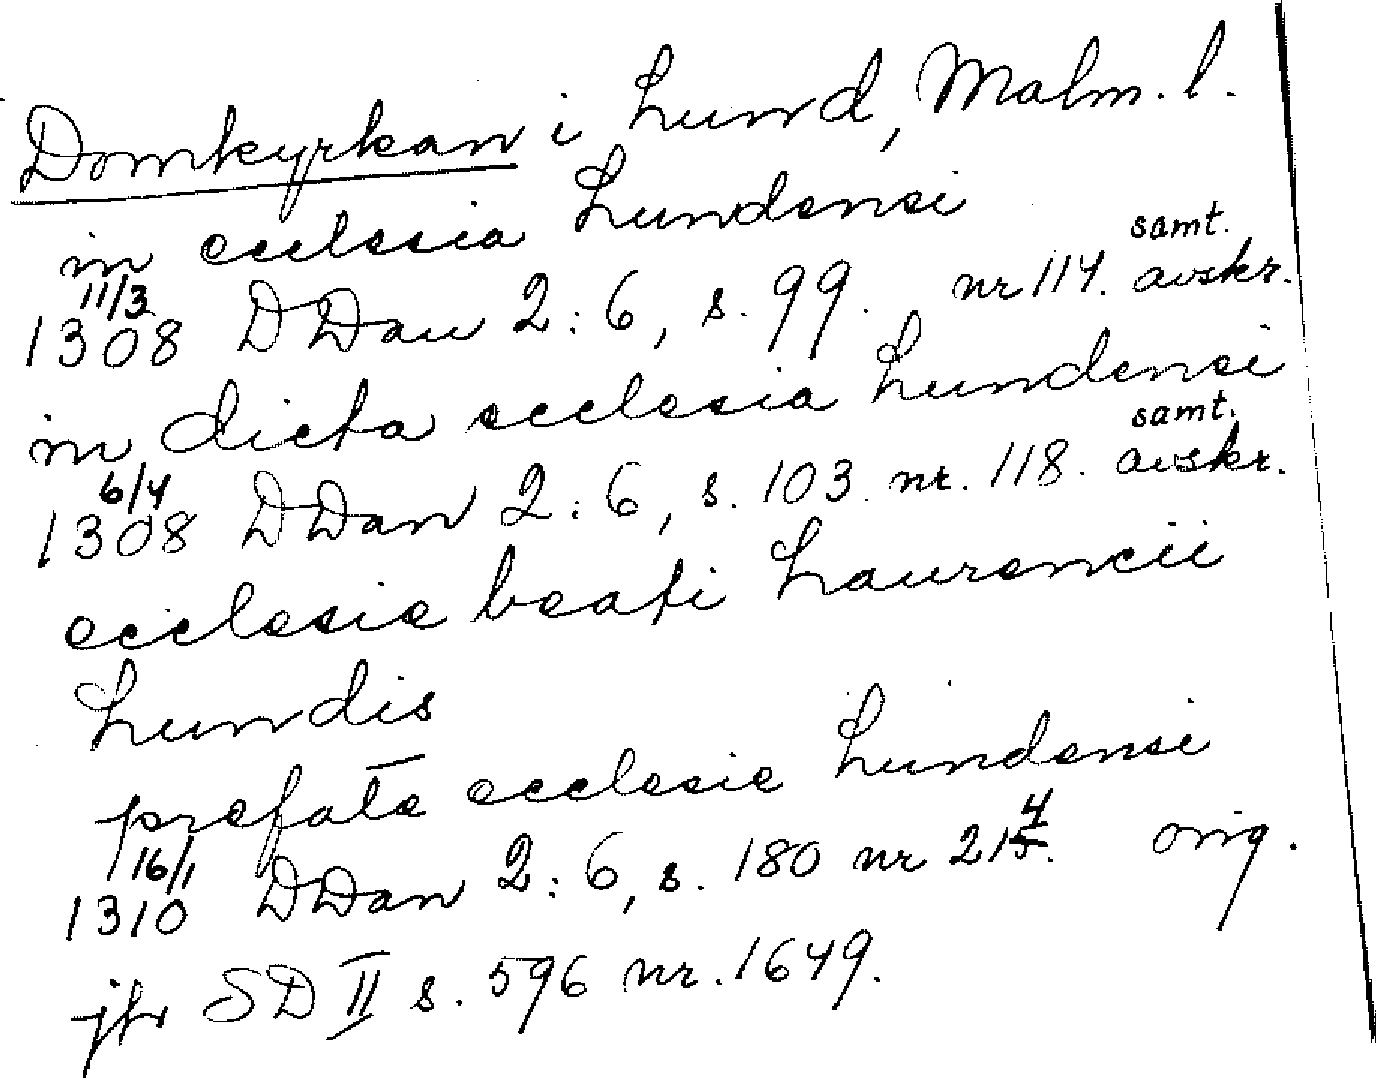 Domkyrkan i Lund, Malm. l.
in ecclesia Lundensi
11/3 samt.
1308 DDan 2:6, s. 99. nr 114. avskr.
in dicta ecclesia Lundensi
6/4 samt.
1308 DDan 2:6, s. 103. nr. 118. avskr.
ecclesie beati Laurencii
Lundis
prefate ecclesie Lundensi
16/1 4
1310 DDan 2:6, s. 180 nr 215. orig.
jfr SD II s. 596 nr. 1649.